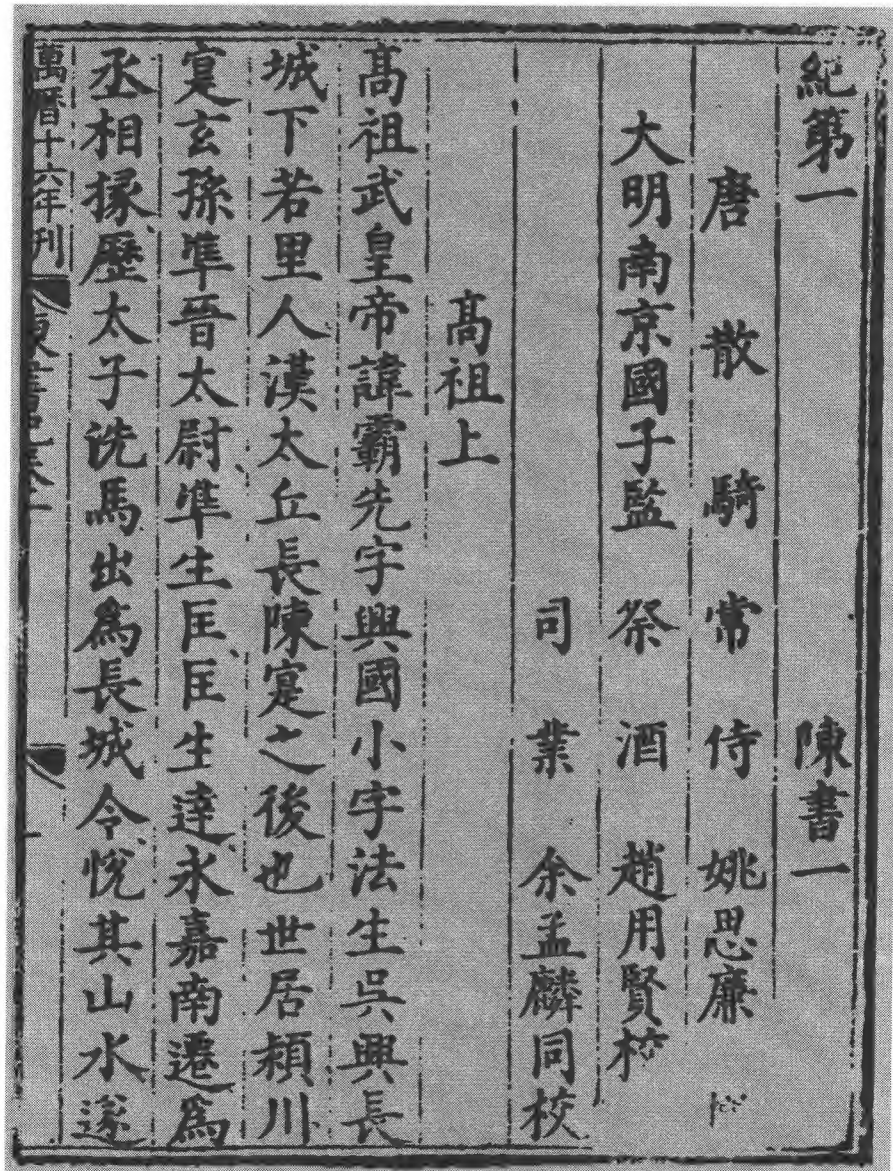 紀第一　陳書一
唐散騎常侍姚思廉
大明南京國子監祭酒趙用賢校
司業余孟麟同校
高祖上
髙祖武皇帝諱霸先字興國小字法生吳興長
城下若里人漢太丘長陳寔之後也世居潁川
寔玄孫準晉太尉準生匡匡生達永嘉南遷爲
丞相掾歷太子洗馬出爲長城令悅其山水遂
萬曆十六年刊